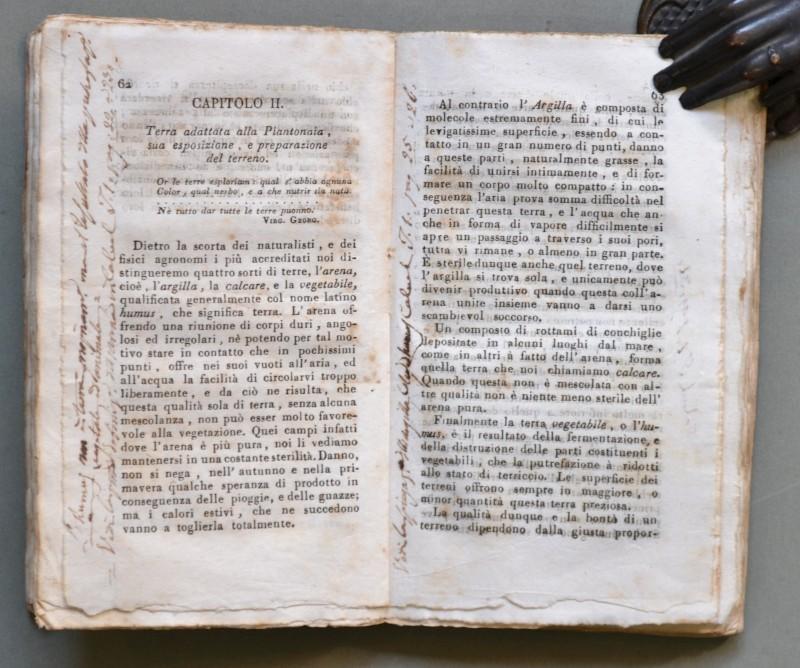 62
CAPITOLO II.
Terra adattata alla Piantonaia,
sua esposizione, e preparazione
del terreno.
Or le terre esploriam: qual s' abbia ognuna
Color, qual nerbo, e a che nutrir sia nata
. . . . . . . . . . . . . . . . . . . .
Nè tutto dar tutte le terre puonno.
VIRG. GEORG.
Dietro la scorta dei naturalisti, e dei
fisici agronomi i più accreditati noi di-
stingueremo quattro sorti di terre, l'arena,
cioè, l'argilla, la calcare, e la vegetabile,
qualificata generalmente col nome latino
humus, che significa terra. L'arena of-
frendo una riunione di corpi duri, ango-
losi ed irregolari, nè potendo per tal mo-
tivo stare in contatto che in pochissimi
punti, offre nei suoi vuoti all'aria, ed
all'acqua la facilità di circolarvi troppo
liberamente, e da ciò ne risulta, che
questa qualità sola di terra, senza alcuna
mescolanza, non può esser molto favore-
vole alla vegetazione. Quei campi infatti
dove l'arena è più pura, noi li vediamo
mantenersi in una costante sterilità. Danno,
non si nega, nell'autunno e nella pri-
mavera qualche speranza di prodotto in
conseguenza delle pioggie, e delle guazze;
ma i calori estivi, che ne succedono
vanno a toglierla totalmente.
63
Al contrario l'Argilla è composta di
molecole estremamente fini, di cui le
levigatissime superficie, essendo a con-
tatto in un gran numero di punti, danno
a queste parti, naturalmente grasse, la
facilità di unirsi intimamente, e di for-
mare un corpo molto compatto: in con-
seguenza l'aria prova somma difficoltà nel
penetrar questa terra, e l'acqua che an-
che in forma di vapore difficilmente si
apre un passaggio a traverso i suoi pori,
tutta vi rimane, o almeno in gran parte.
È sterile dunque anche quel terreno, dove
l'argilla si trova sola, e unicamente può
divenir produttivo quando questa coll'a-
rena unite insieme vanno a darsi uno
scambievol soccorso.
Un composto di rottami di conchiglie
depositate in alcuni luoghi dal mare,
come in altri à fatto dell'arena, forma
quella terra che noi chiamiamo calcare.
Quando questa non è mescolata con al-
tre qualità non è niente meno sterile dell'
arena pura.
Finalmente la terra vegetabile, o l'hu-
mus, è il resultato della fermentazione, e
della distruzione delle parti costituenti i
vegetabili, che la putrefazione à ridotti
allo stato di terriccio. Le superficie dei
terreni offrono sempre in maggiore, o
minor quantità questa terra preziosa.
La qualità dunque e la bontà di un
terreno dipendono dalla giusta propor-